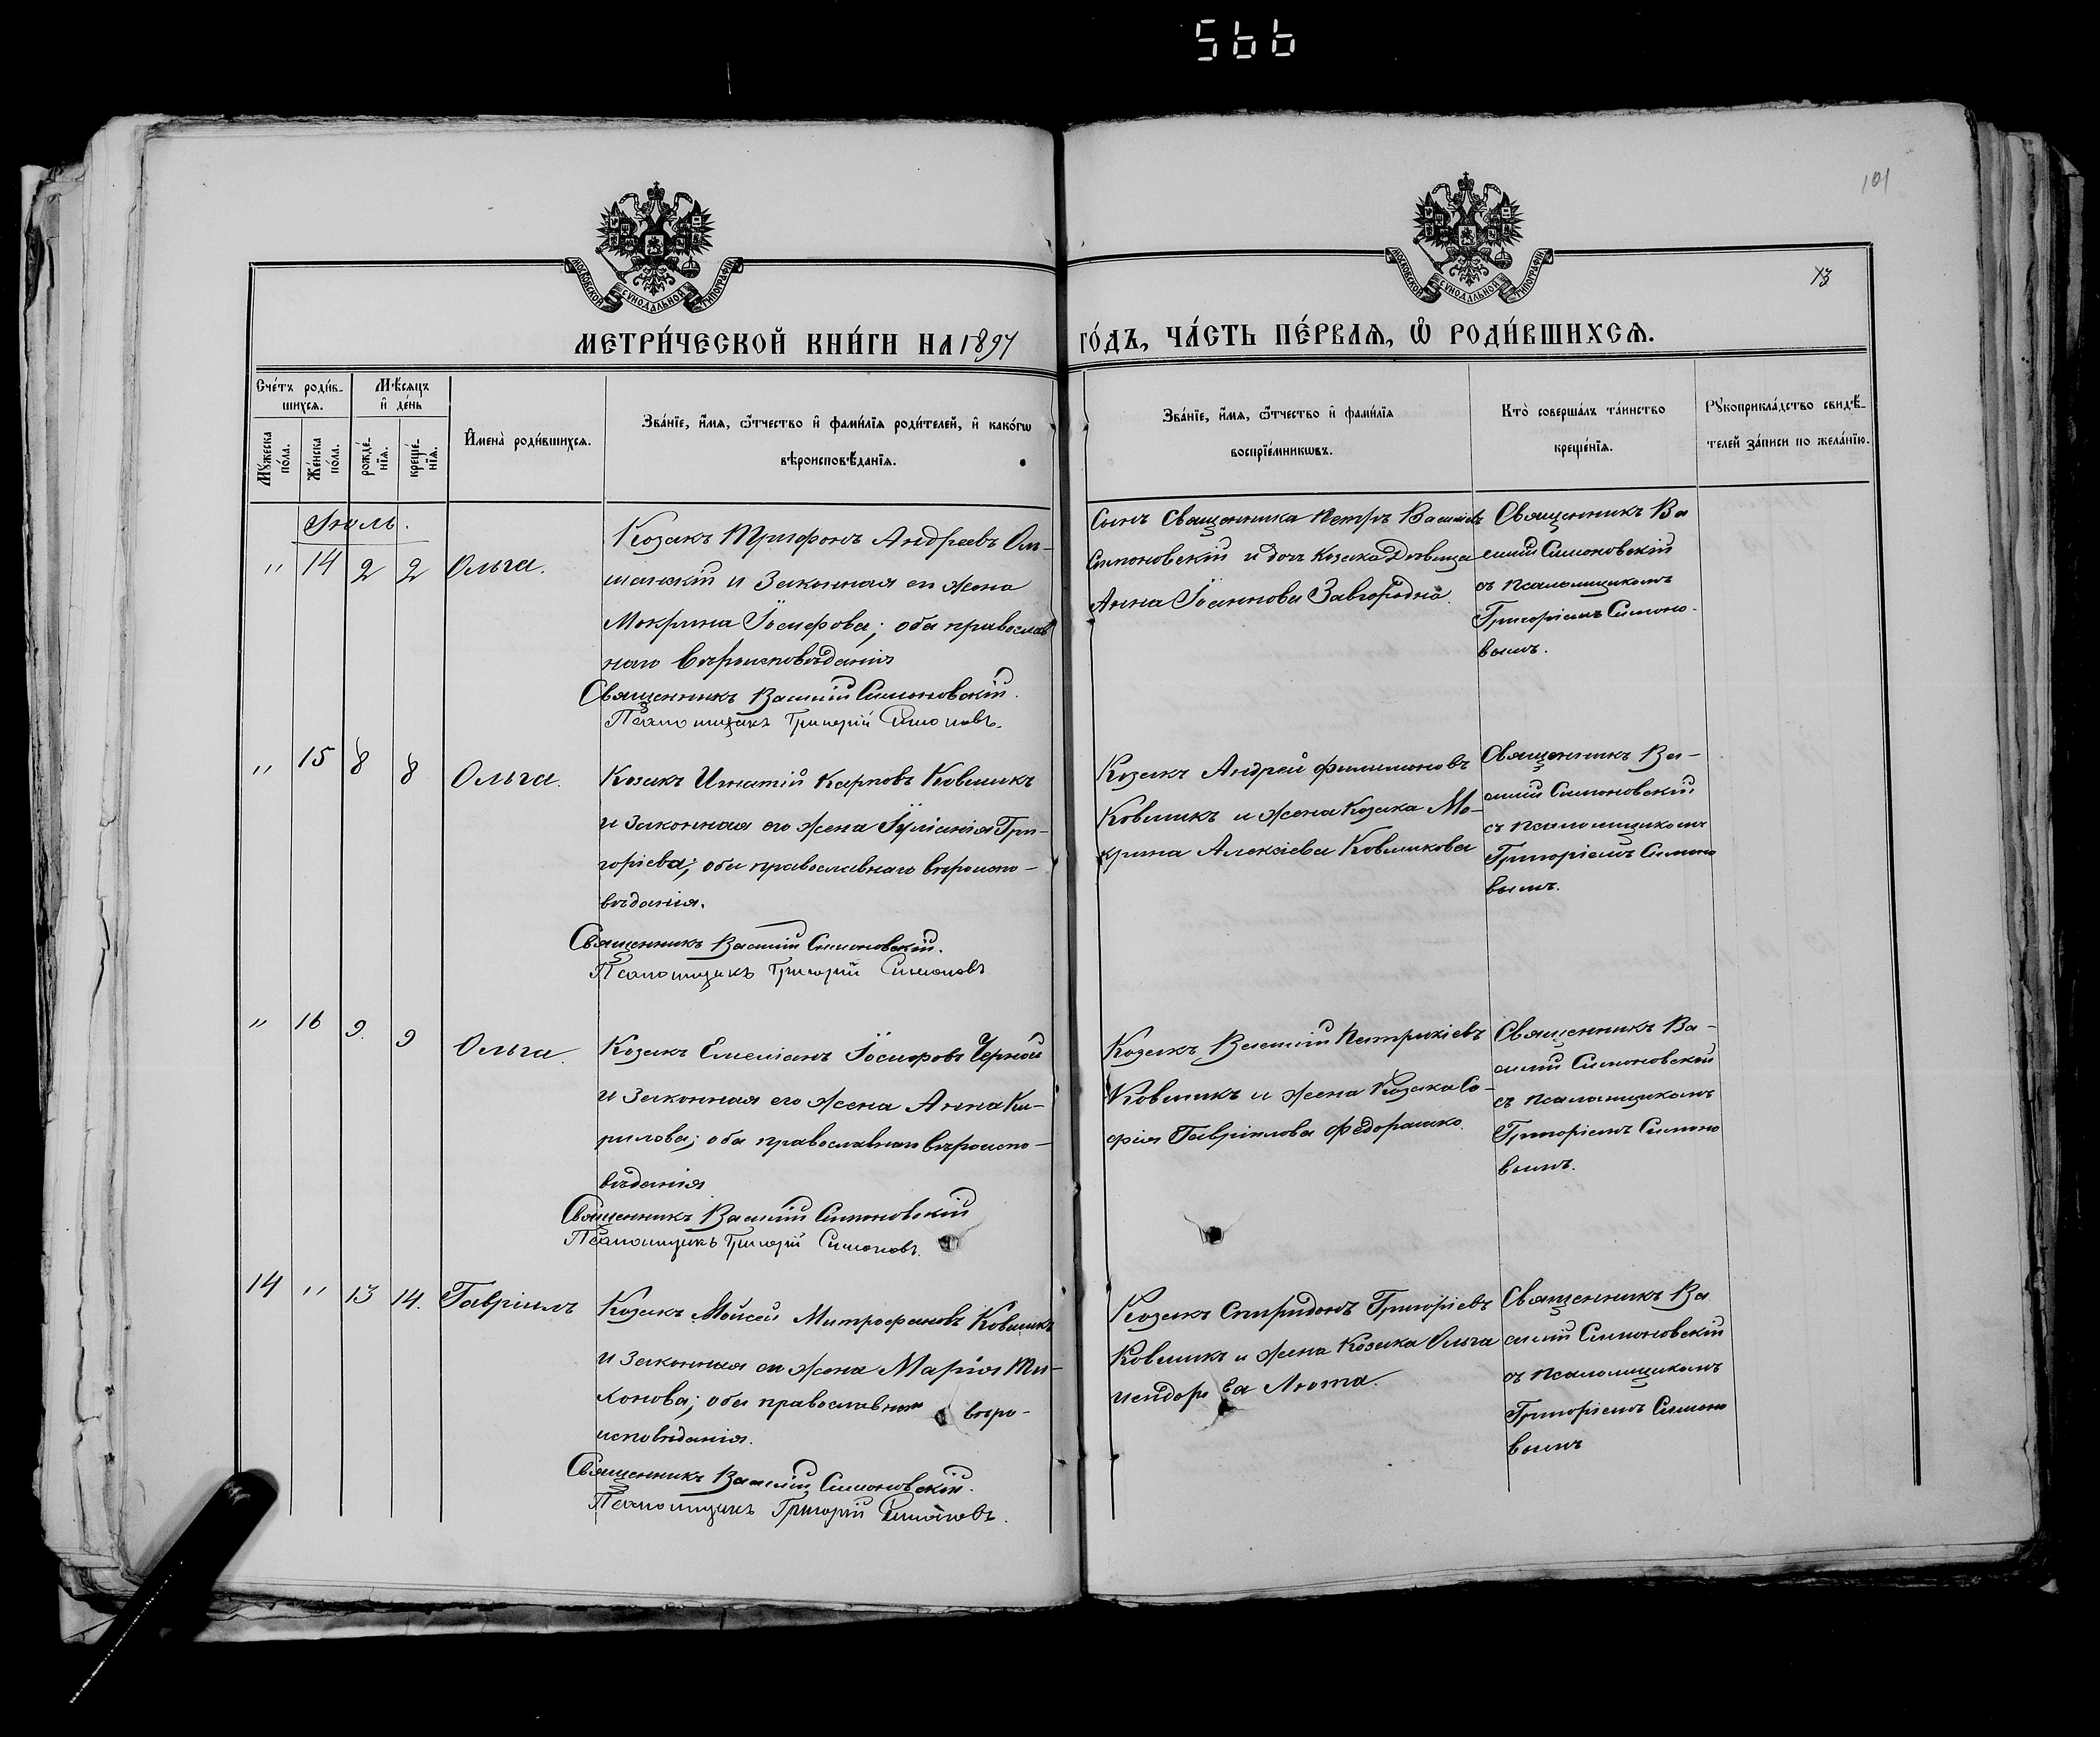 566
101
13
МОСКОВСКОЙ СѴНОДАЛЬНОЙ ТИПОГРАФІИ
МОСКОВСКОЙ СѴНОДАЛЬНОЙ ТИПОГРАФІИ
МЕТРИ́ЧЕСКОЙ КНИ́ГИ НА 1897
ГО́ДЪ, ЧА́СТЬ ПЕ́РВАѦ, Ѽ РОДИ́ВШИХСѦ.
Сче́тъ роди́в-
шихсѧ.
Мѣ́сѧцъ
и҆ де́нь
Мꙋ́жеска
по́ла.
Же́нска
по́ла.
рожде́-
нїѧ.
креще́-
нїѧ.
И҆мена̀ роди́вшихсѧ.
Зва́нїе, и҆́мѧ, ѻ҆́тчество и҆ фами́лїѧ роди́телей, и҆ како́гѡ
вѣроисповѣ́данїѧ.
Зва́нїе, и҆́мѧ, ѻ҆́тчество и҆ фами́лїѧ
воспрїе́мникѡвъ.
Кто̀ соверша́лъ та́инство
креще́нїѧ.
Рꙋкоприкла́дство свидѣ́-
телей за́писи по жела́нїю.
Іюль.
" 14 2 2 Ольга.
Козакъ Трифонъ Андреевъ Ом-
и Законная ею жена
Мокрина Іосифова; оба православ
наго вѣроисповѣданія
Священникъ Василій Симоновскій.
Псаломщикъ Григорій Симоновъ.
Сынъ Священника Петръ Васильевъ
Симоновскій и дочь Козака Дѣвица
Анна Іоаннова Завгородня.
Священникъ Ва
силій Симоновскій
съ псаломщикомъ
Григоріемъ Симоно-
вымъ.
" 15 8 8 Ольга.
Козакъ Игнатій Карповъ Ковшикъ
и законная его жена Іуліанія Гри-
горіева; оба православнаго вѣроиспо-
вѣданія.
Священникъ Василій Симоновскій.
Псаломщикъ Григорій Симоновъ
Козакъ Андрей Филимоновъ
Ковшикъ и жена Козака Мо-
крина Алексіева Ковшикова
Священникъ Ва-
силій Симоновскій
съ псаломщикомъ
Григоріемъ Симоно
вымъ.
" 16 9. 9 Ольга.
Козакъ Емеліанъ Іосифовъ Черный
и законная его жена Анна Ки-
рилова; оба православнаго вѣроиспо-
вѣданія
Священникъ Василій Симоновскій
Псаломщикъ Григорій Симоновъ.
Козакъ Василій Патрикіевъ
Ковшикъ и жена Козака Со-
фія Гавріилова Федорашко.
Священникъ Ва-
силій Симоновскій
съ псаломщикомъ
Григоріемъ Симоно
вымъ.
14 " 13 14. Гавріилъ
Козакъ Мойсей Митрофановъ Ковшикъ
и Законная ею жена Марія Ти-
хонова; оба православнаго вѣро-
исповѣданія.
Священникъ Василій Симоновскій.
Псаломщикъ Григорій Симоновъ.
Козакъ Спиридонъ Григоріевъ
Ковшикъ и жена Козака Ольга
Исидорова Люта.
Священникъ Ва
силій Симоновскій
съ псаломщикомъ
Григоріемъ Симоно
вымъ